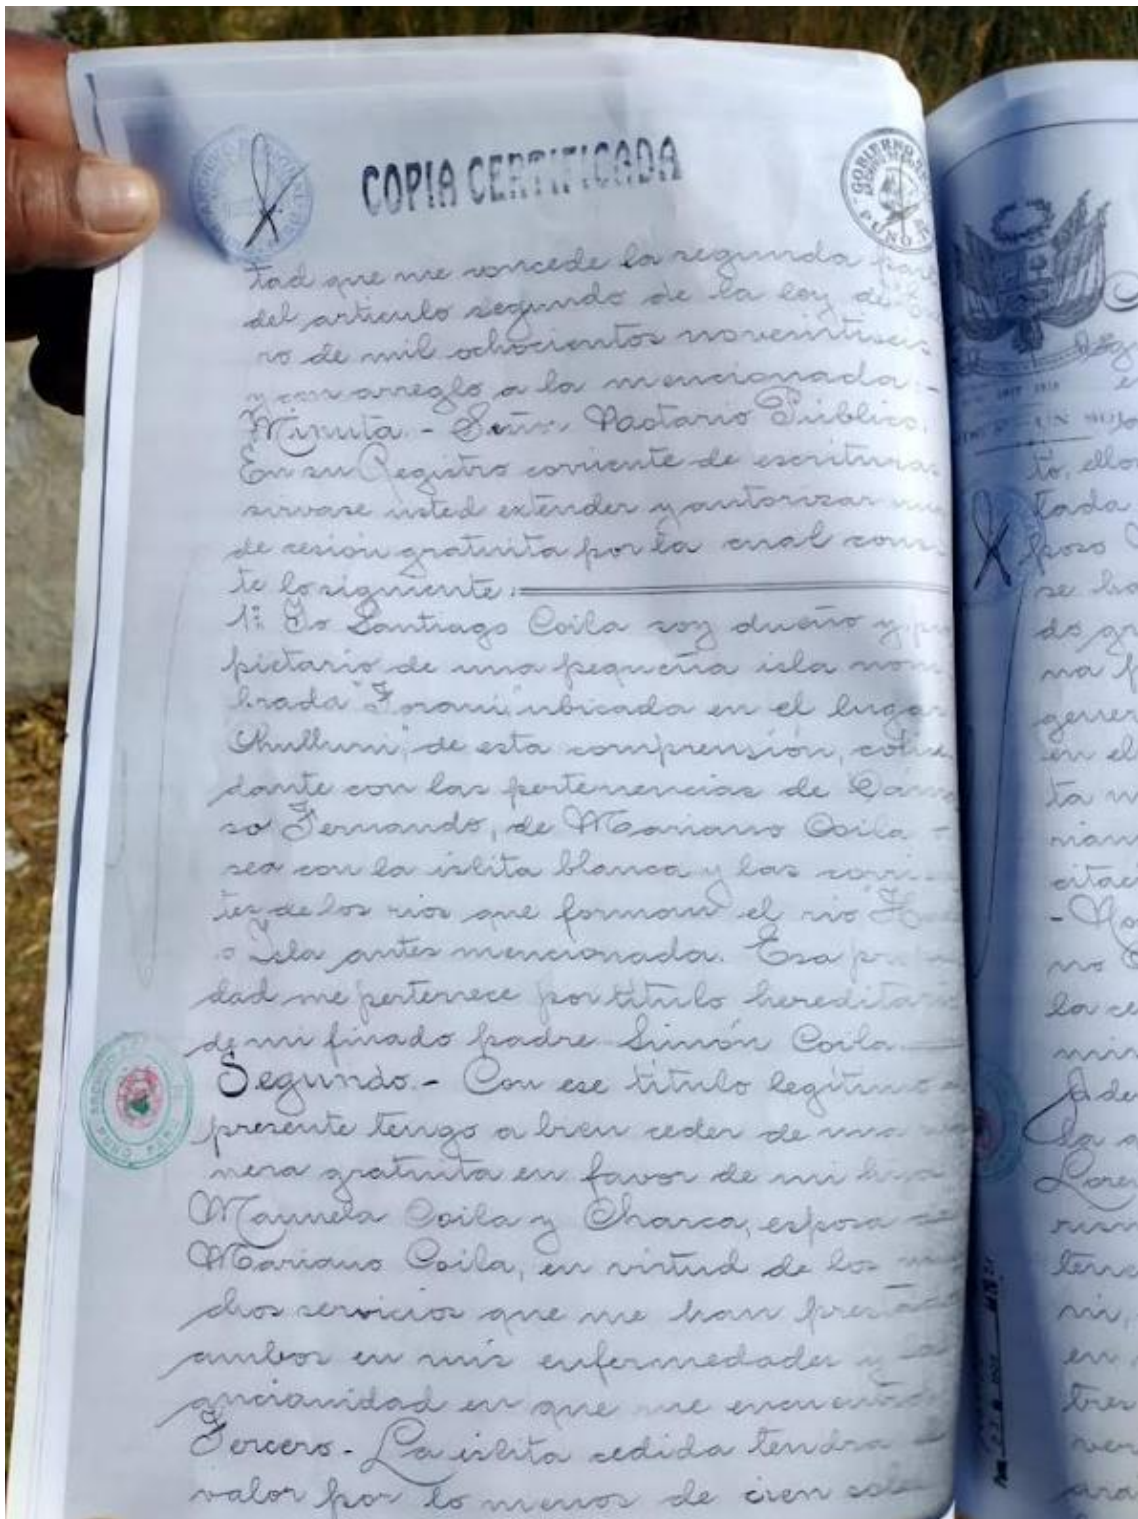 COPIA CERTIFICADA
GOBIERNO
PUNO
tad que me concede la segunda
del articulo segundo de la ley de
ro de mil ochocientos noventiseis
y con arreglo a la mencionada.-
Minuta.- Señor Notario Público.
En su Registro corriente de escrituras
sirvase usted extender y autorizar una
de cesión gratuita por la cual cons-
te lo siguiente:
1º: Yo Santiago Coila soy dueño y pro
pietario de una pequeña isla nom
brada "Torani" ubicada en el lugar
Chulluni, de esta comprensión, colin
dante con las pertenencias de
so Fernando, de Mariano Coila
sea con la islita blanca y las corrien
tes de los rios que forman el rio
o Isla antes mencionada. Esa propie
dad me pertenece por título hereditario
de mi finado padre Simón Coila.
Segundo.- Con ese título legítimo
presente tengo a bien ceder de una ma
nera gratuita en favor de mi hija
Manuela Coila y Charca, esposa de
Mariano Coila, en virtud de los mu
chos servicios que me han prestado
ambos en mis enfermedades y
ancianidad en que me encuentro
Tercero.- La islita cedida tendrá
valor por lo menos de cien soles
to, ello
tada
poso
se ha
do gr
na p
gener
en el
ta
rian
citac
no
la ce
min
Ade
la
Lore
ni,
en
tres
ver
PUNO